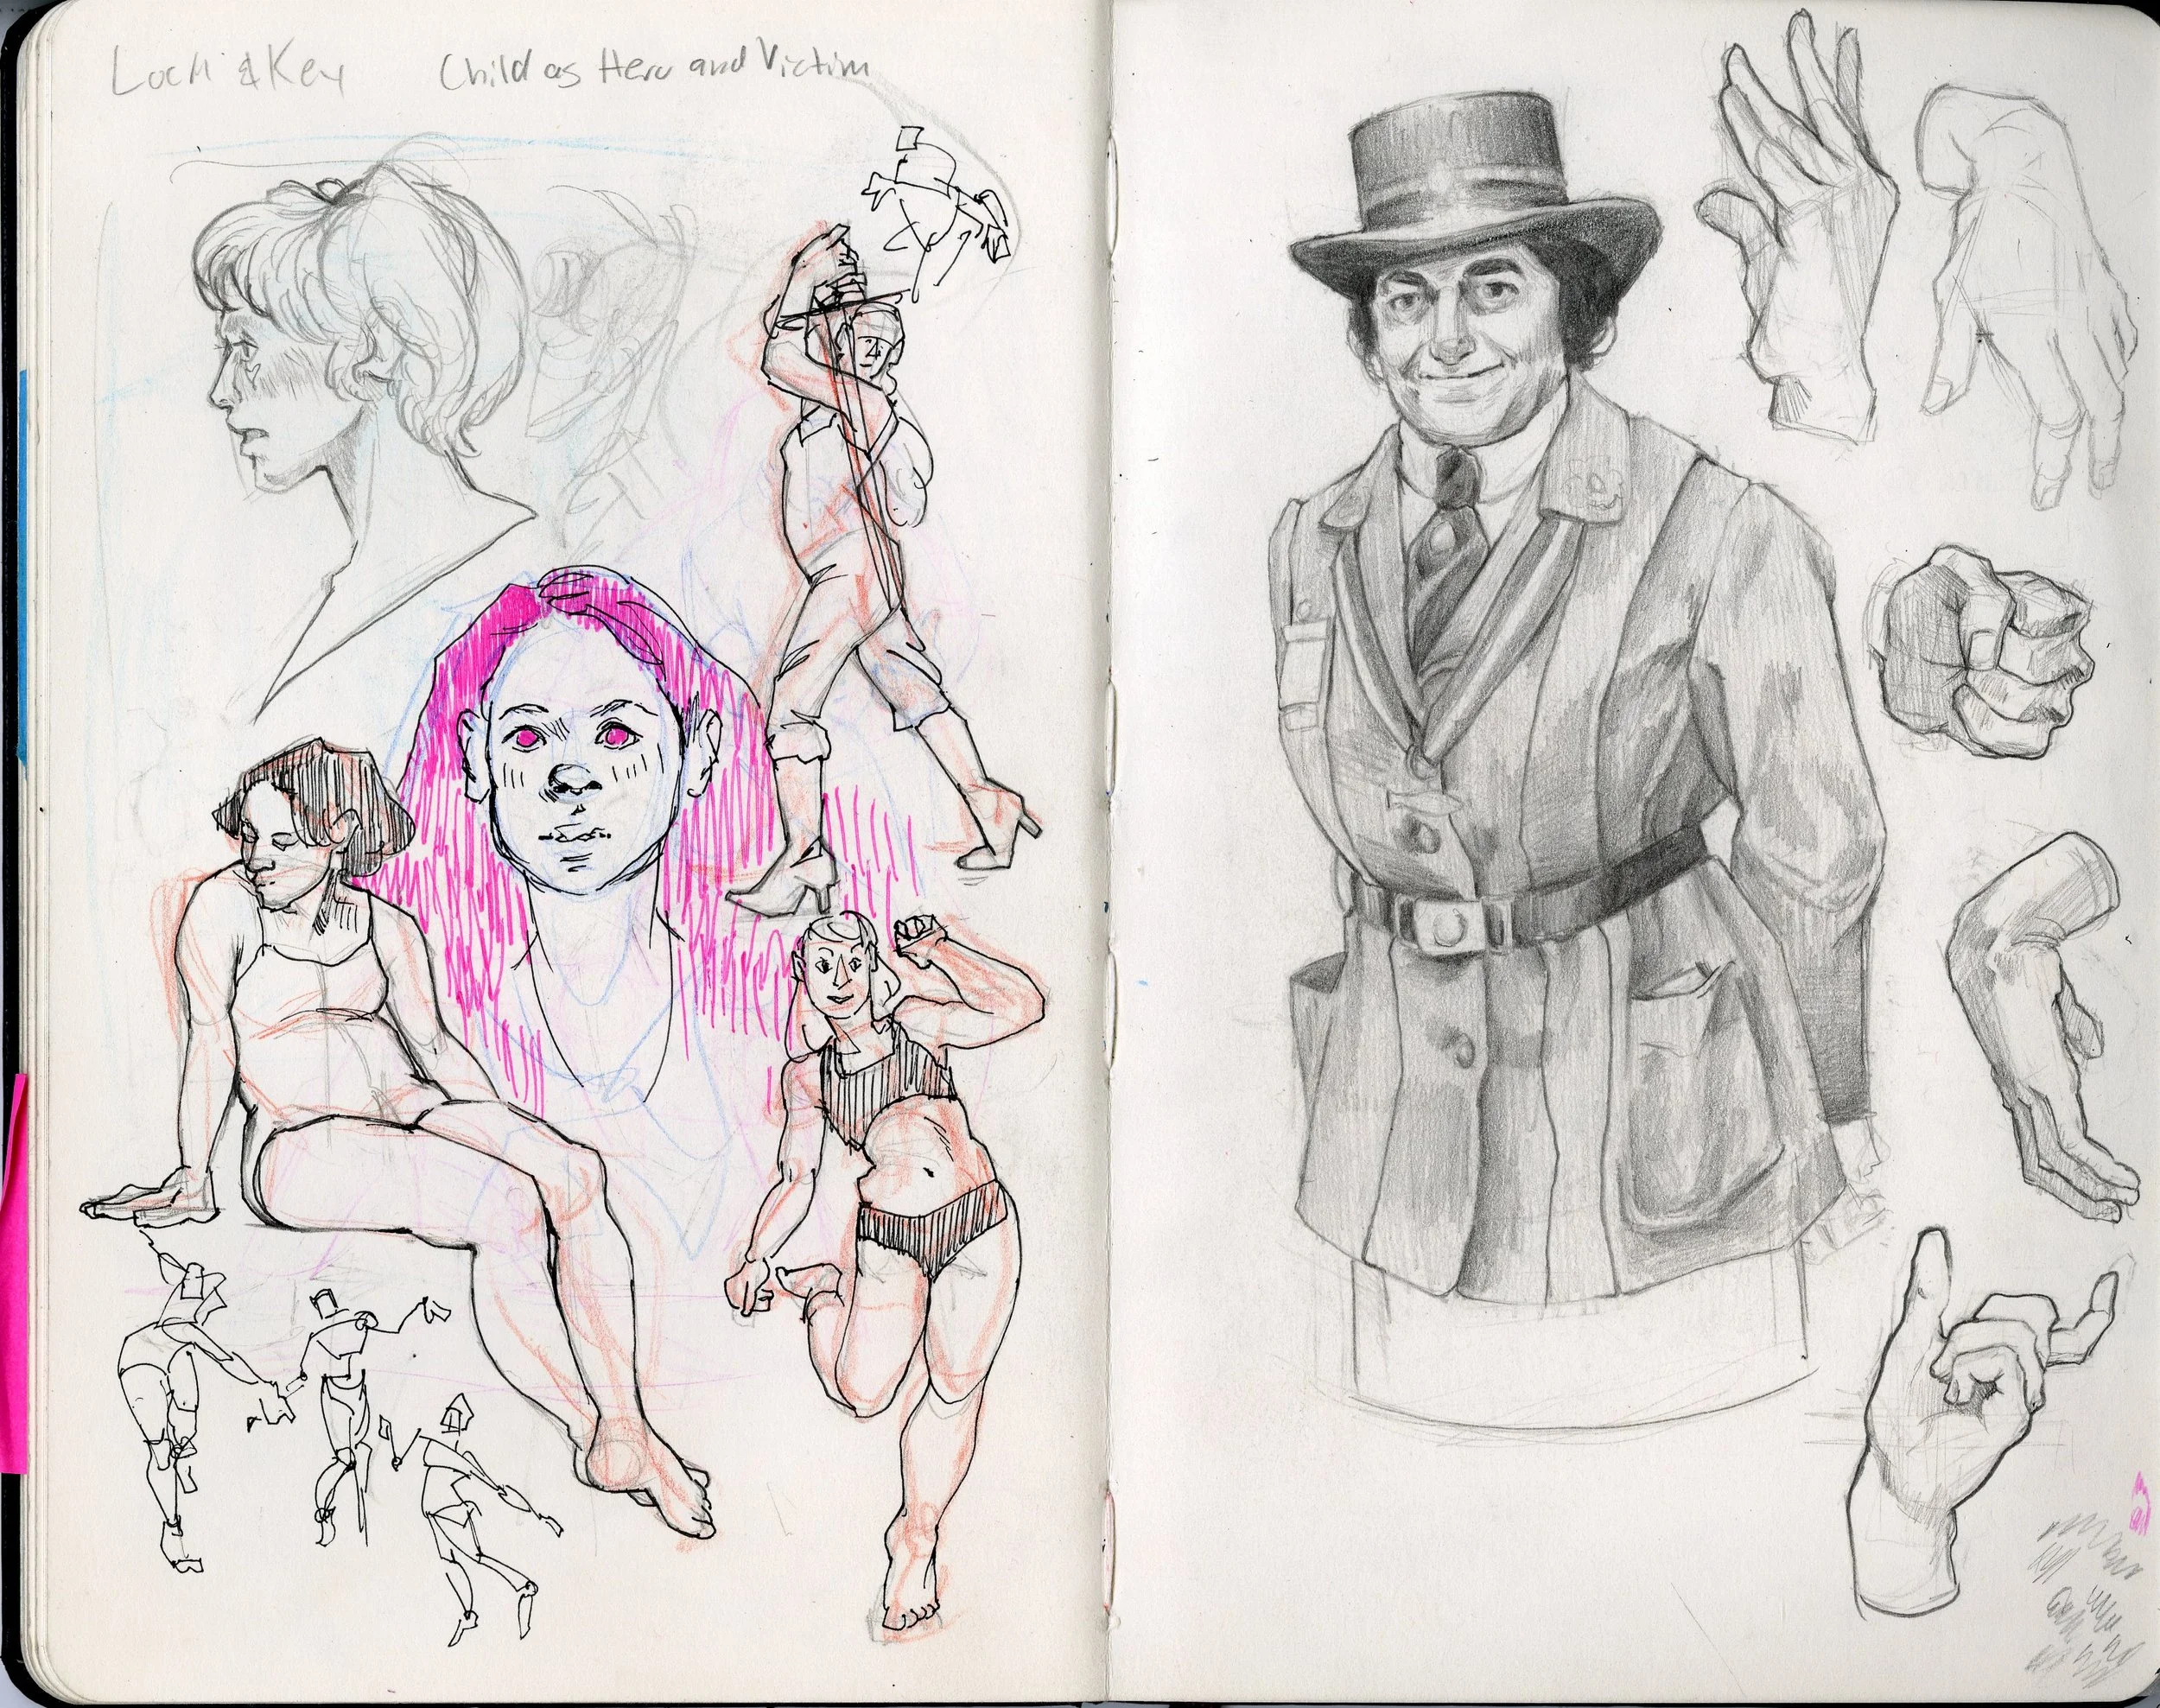 Lock & Key
Child as Hero and Victim